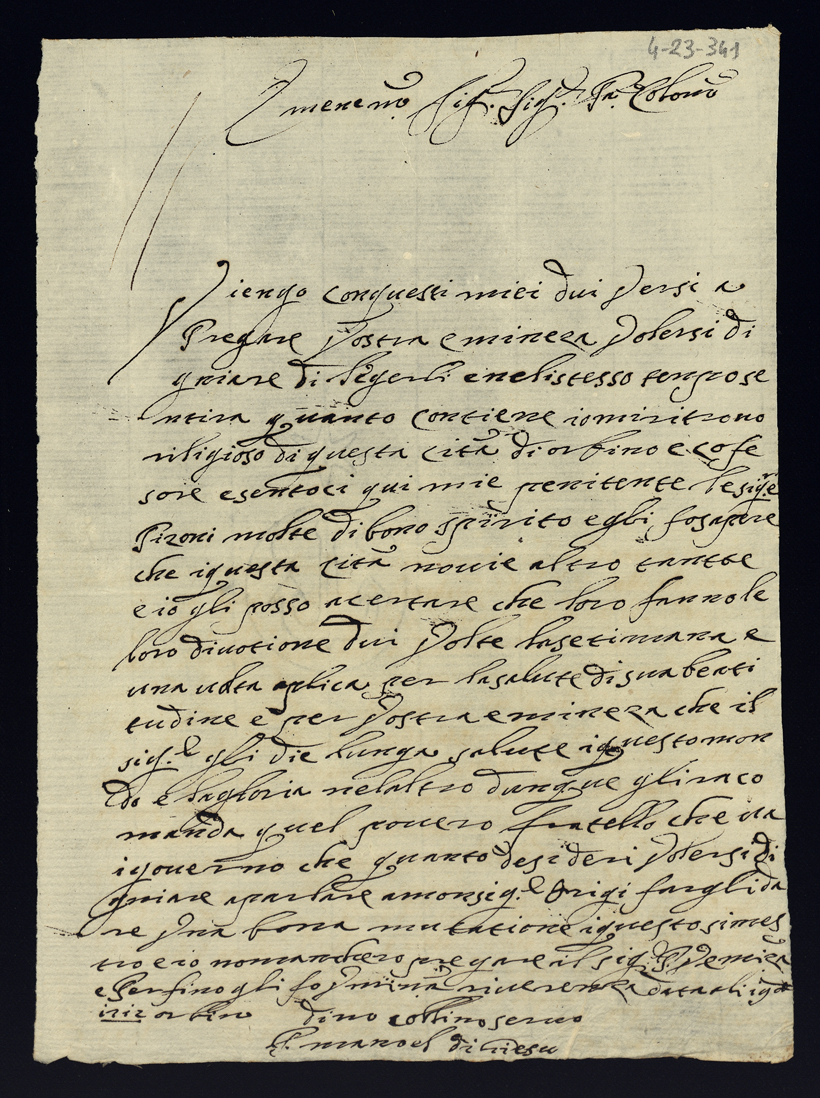 4-23-341
Emene.mo Sig.r Sig.r Pa.e Colon.mo
Viengo conquesti miei dui Versi a
Pregare Vostra emineza Volersi di
gniare di legerli enelistesso tenpose
ntira quanto contiene iomiritrovo
riligioso di questa cità di orbino e cofe
sore esentoci qui mie penitente lesig.re
Pironi molte di bono spirito egli fosapere
che iquesta cità novie altro tantte
e io gli posso acertare che loro fannole
loro divotione dui Volte lasetimana e
una volta aplica per lasalute di sua beati
tudine e per Vostra emineza che il
sig.re gli die lunga salute iquestomon
do e lagloria nelaltro dunque gliraco
manda quel povero fratello che va
igoverno che quanto desideri Volersi di
gniare aparlare amonsig.re Origi fargli da
re Una bona mutatione iquesto simes
tro e io nomanchero pregare il sig.re P. V. emineza
e Perfino gli fo Umina riverenza data li
orbino divo servo
F. manoel di giesu